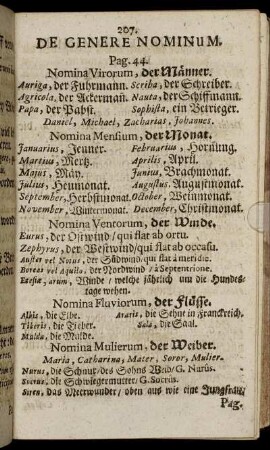 207.
DE GENERE NOMINUM.
Pag. 44.
Nomina Virorum, der Männer.
Auriga, der Fuhrmann. Scriba, der Schreiber.
Agricola, der Ackerman. Nauta, der Schiffmann.
Papa, der Pabst. Sophista, ein Betrieger.
Daniel, Michael, Zacharias, Johannes.
Nomina Mensium, der Monat.
Januarius, Jenner. Februarius, Hornung.
Martius, Mertz. Aprilis, April.
Majus, Mäy. Junius, Brachmonat.
Julius, Heumonat. Augustus. Augustmonat.
September, Herbstmonat. October, Weinmonat.
November, Wintermonat. December, Christmonat.
Nomina Ventorum, der Winde.
Eurus, der Ostwind / qui flat ab ortu.
Zephyrus, der Westwind / qui flat ab occasu.
Auster vel Notus, der Südwind. qui flat à meridie.
Boreas vel Aquilo, der Nordwind / à Septentrione.
Etesiæ, arum, Winde / welche jährlich um die Hundes-
tage wehen.
Nomina Fluviorum, der Flüsse.
Albis, die Elbe. Araris, die Sehne in Franckreich.
Tiberis, die Tieber. Sala, die Saal.
Mulda, die Mulde.
Nomina Mulierum, der Weiber.
Maria, Catharina, Mater, Soror, Mulier.
Nurus, die Schnur / des Sohns Weib / G. Narûs.
Socrus, die Schwiegermutter / G. Socrûs.
Siren, das Meerwunder / oben aus wie eine Jungfrau/
Pag.